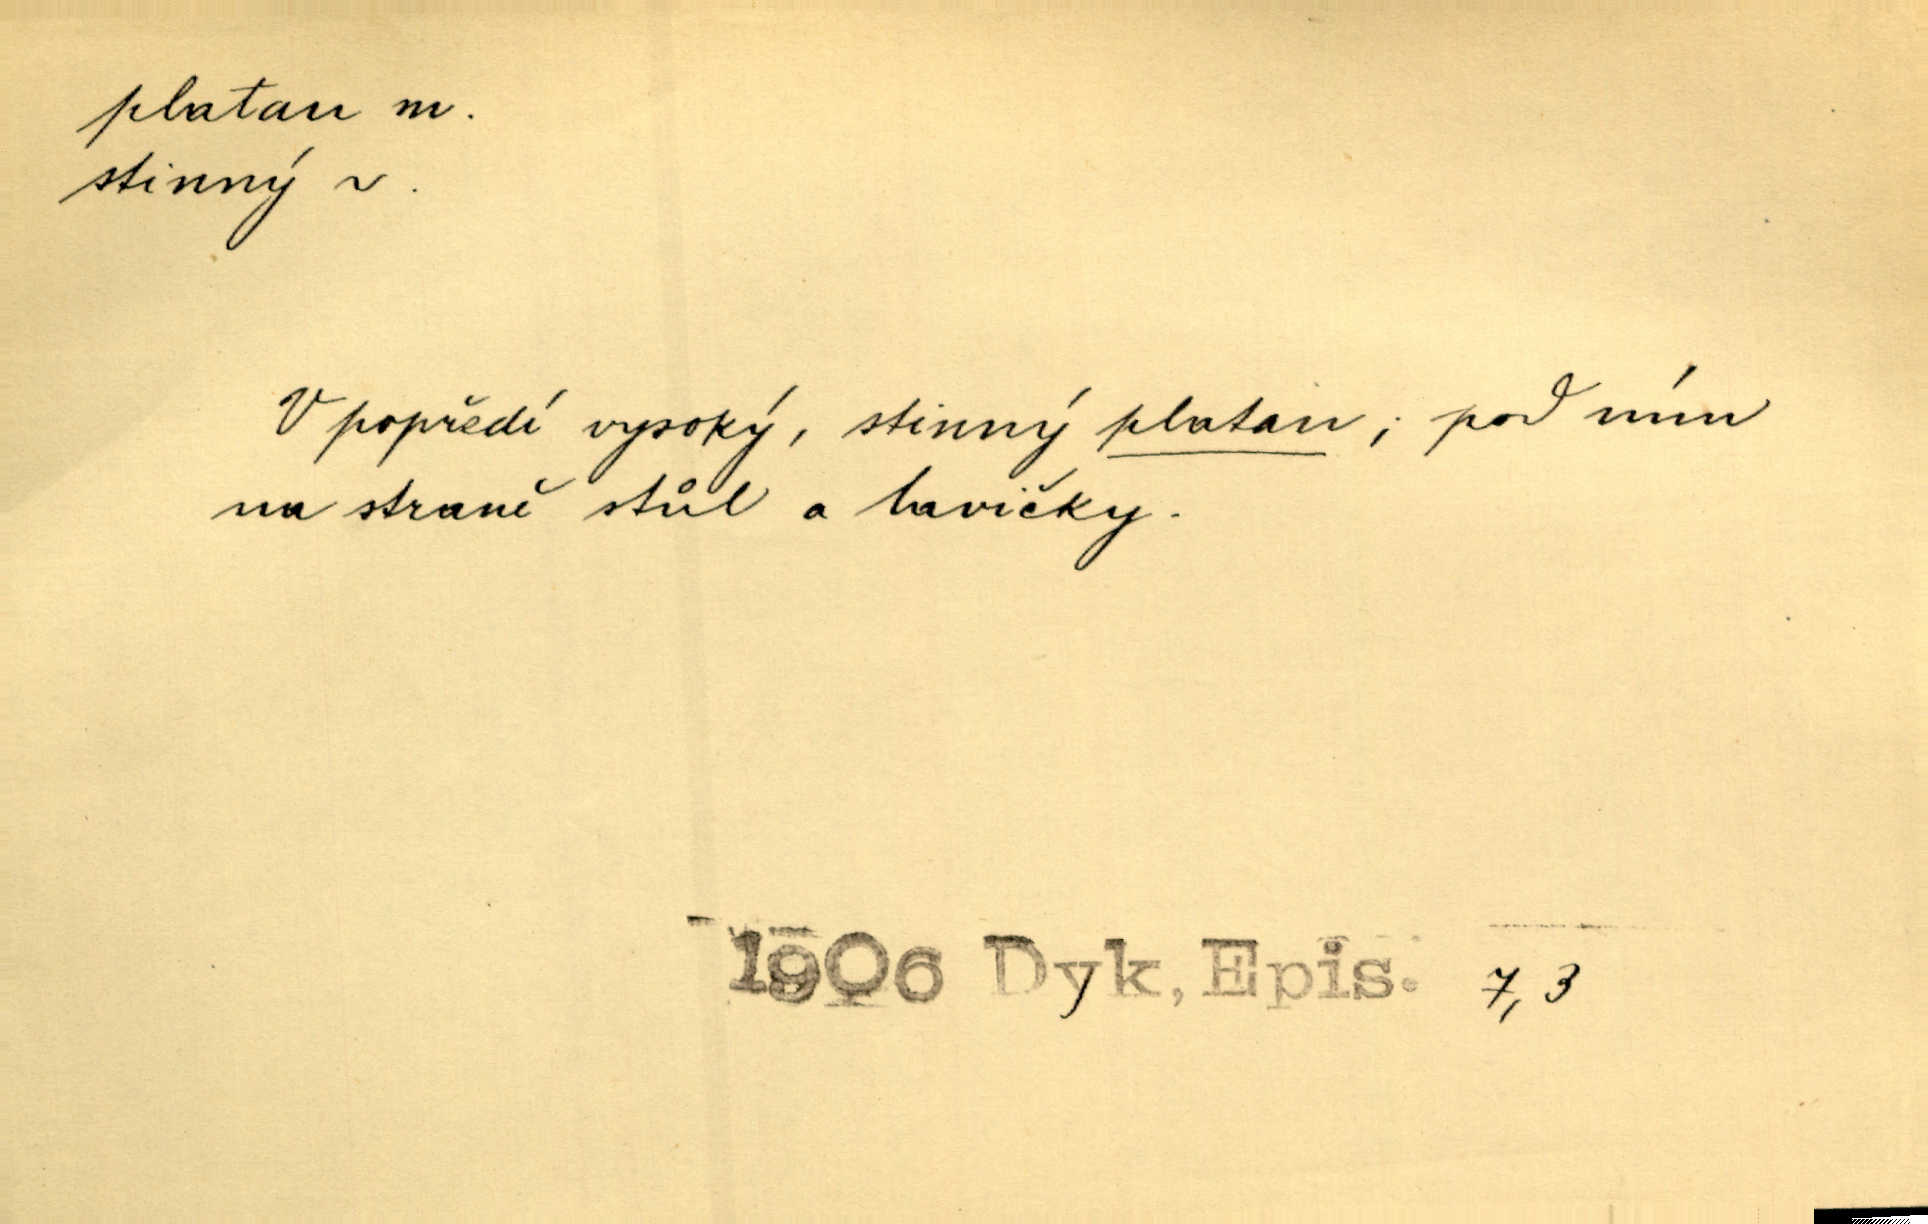 platan m.
stinný ~.
V popředí vysoký, stinný platan; pod ním
na straně stůl a lavičky.
1906 Dyk, Epis. 7, 3